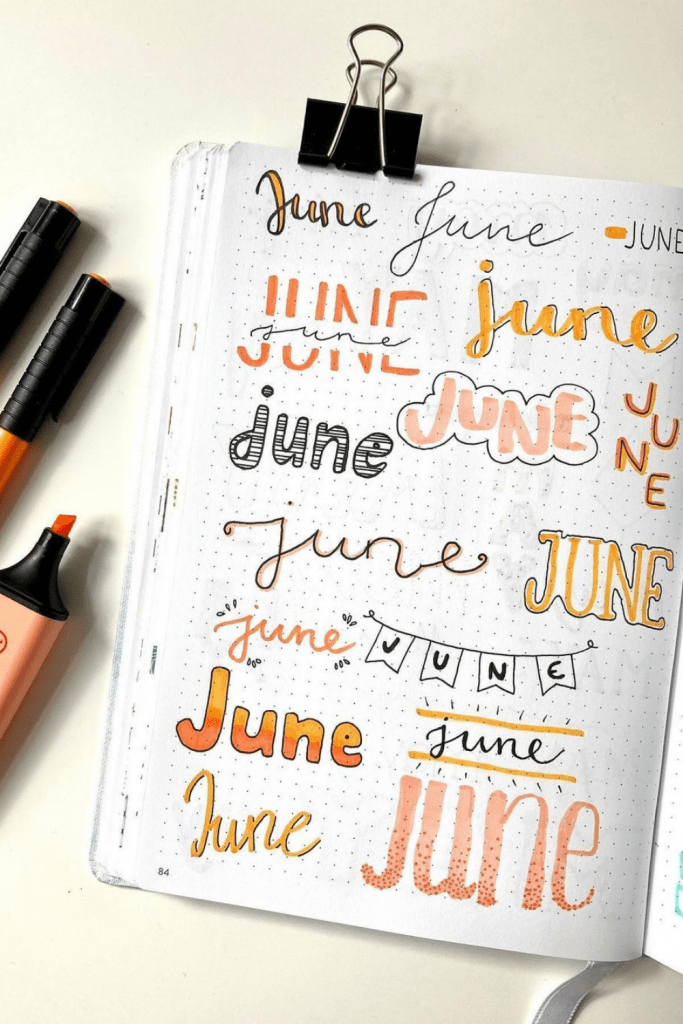 June June JUNE
JUNE june june
june JUNE JUNE
june JUNE
june JUNE
June june
June June
84